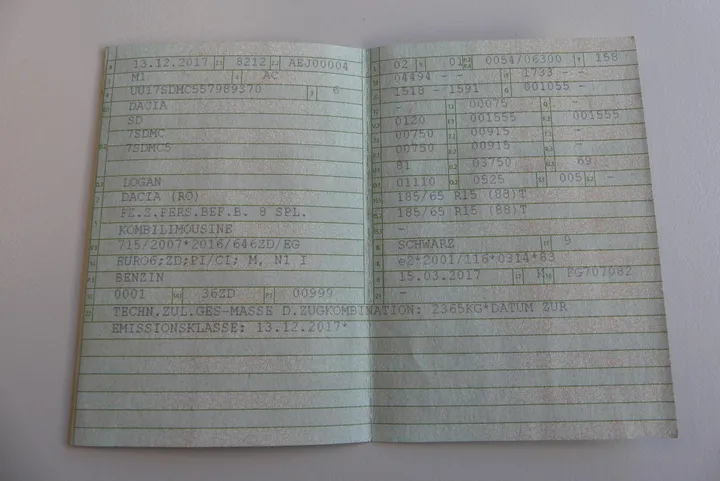 13.12.2017 8212 AEJ00004
M1 AC
UU17SDMC557989370 6
DACIA
SD
7SDMC
7SDMC5
LOGAN
DACIA (RO)
FZ.Z.PERS.BEF.B. 8 SPL.
KOMBILIMOUSINE
715/2007*2016/646ZD/EG
EURO6;ZD;PI/CI; M, N1 I
BENZIN
0001 36ZD 00999
TECHN.ZUL.GES-MASSE D.ZUGKOMBINATION: 2365KG*DATUM ZUR
EMISSIONSKLASSE: 13.12.2017*
02 01 0054/06300 158
04494 - - 1733 - -
1518 - 1591 001055 -
- 00075 -
0120 001555 001555
00750 00915 -
00750 00915 -
81 03750 69
01110 0525 005 -
185/65 R15 (88)T
185/65 R15 (88)T
-
SCHWARZ 9
e2*2001/116*0314*83
15.03.2017 FG707082
-